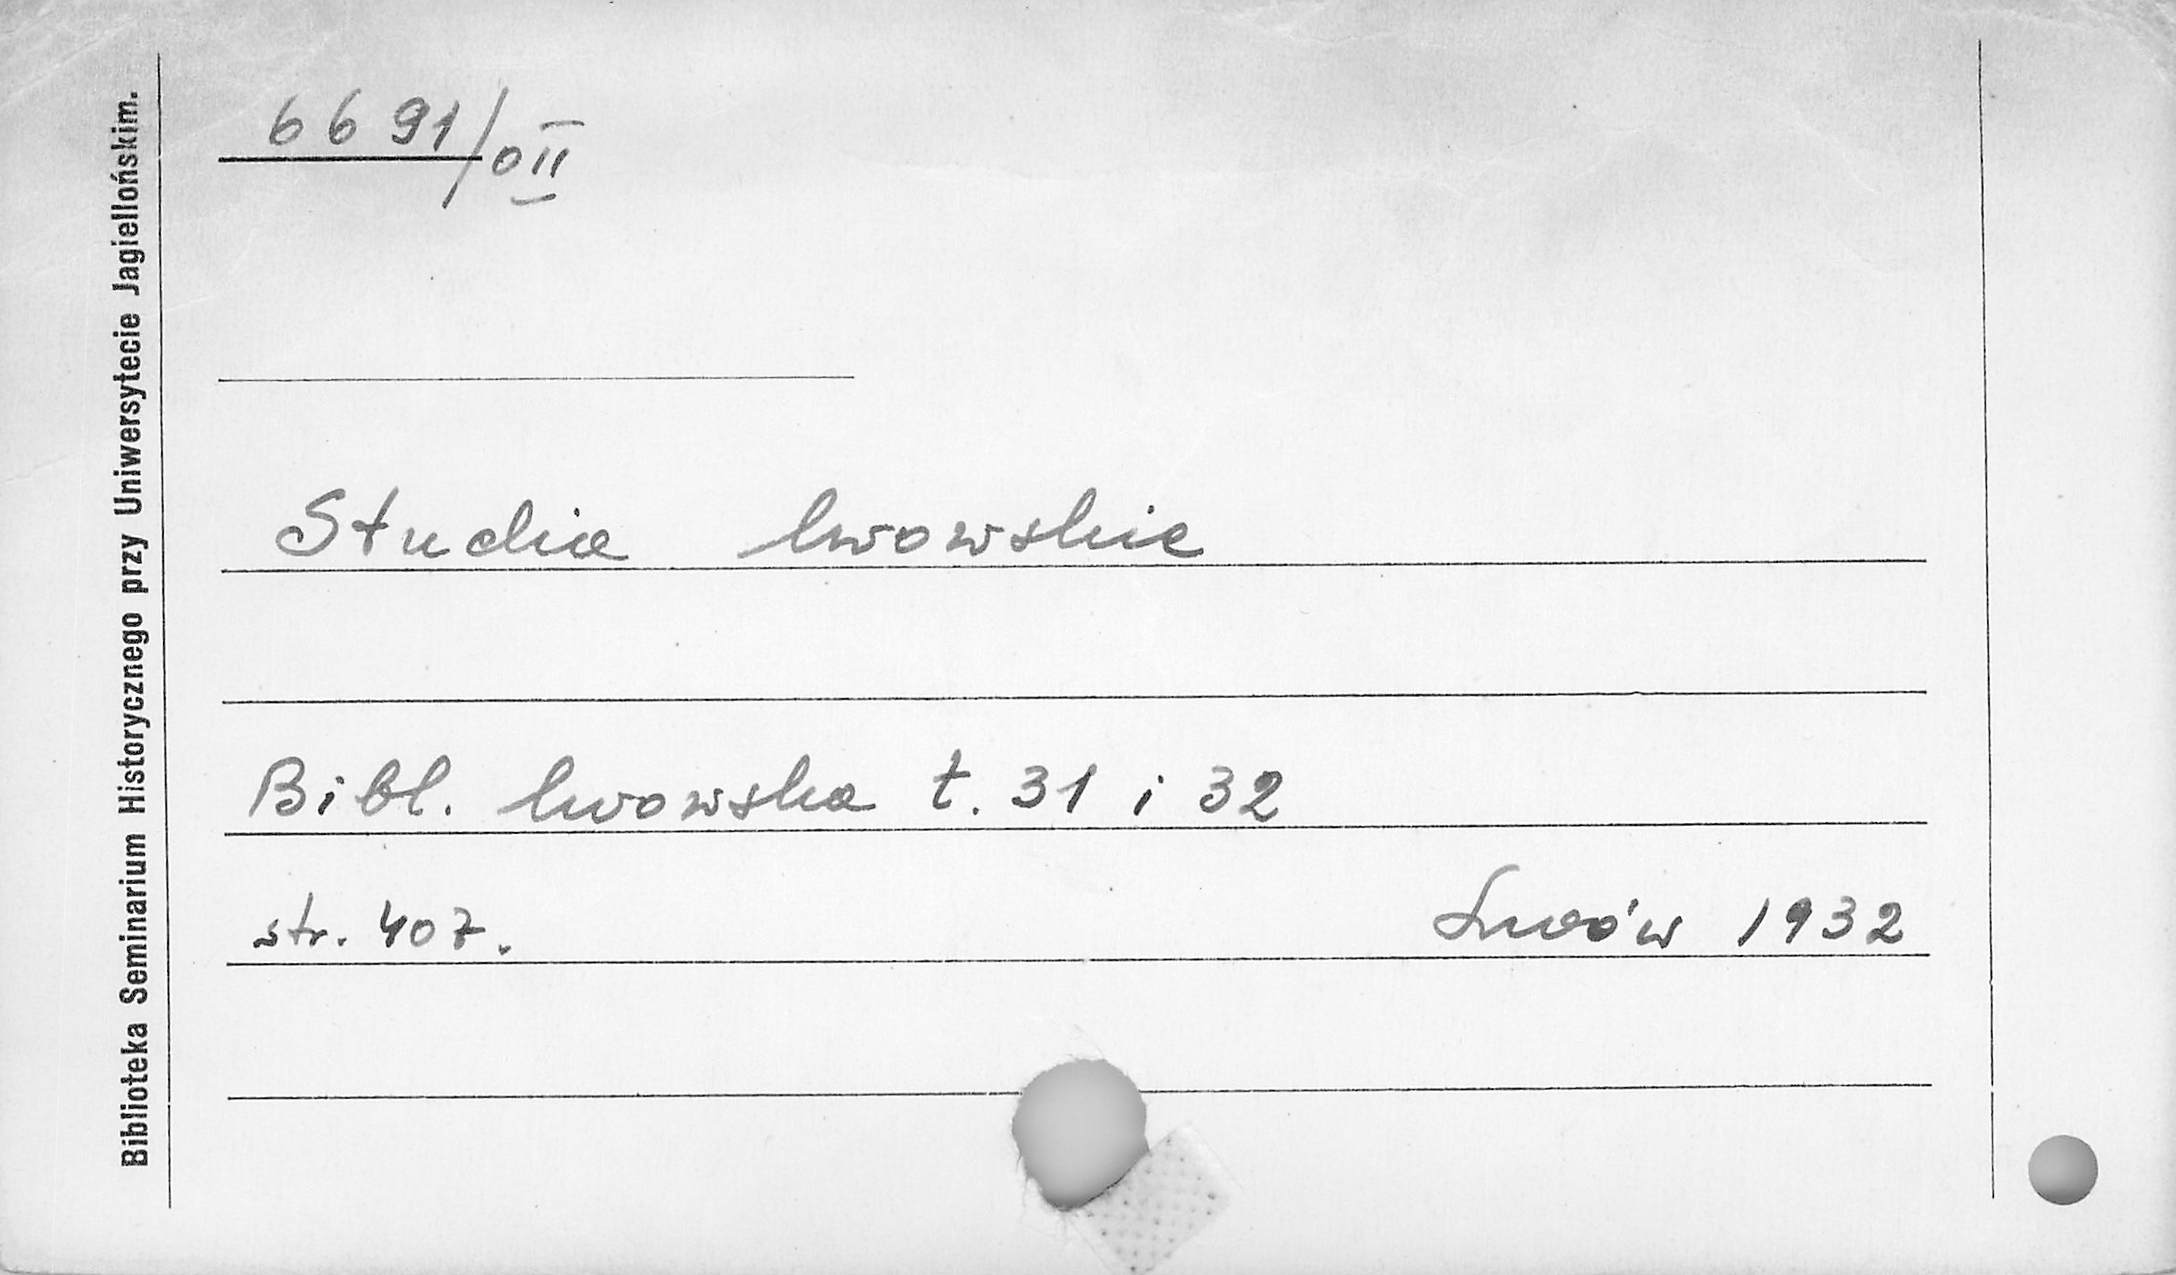 Biblioteka Seminarium Historycznego przy Uniwersytecie Jagiellońskim.
6691/0II
Studia lwowskie
Bibl. lwowska t. 31 i 32
str. 407.
Lwów 1932